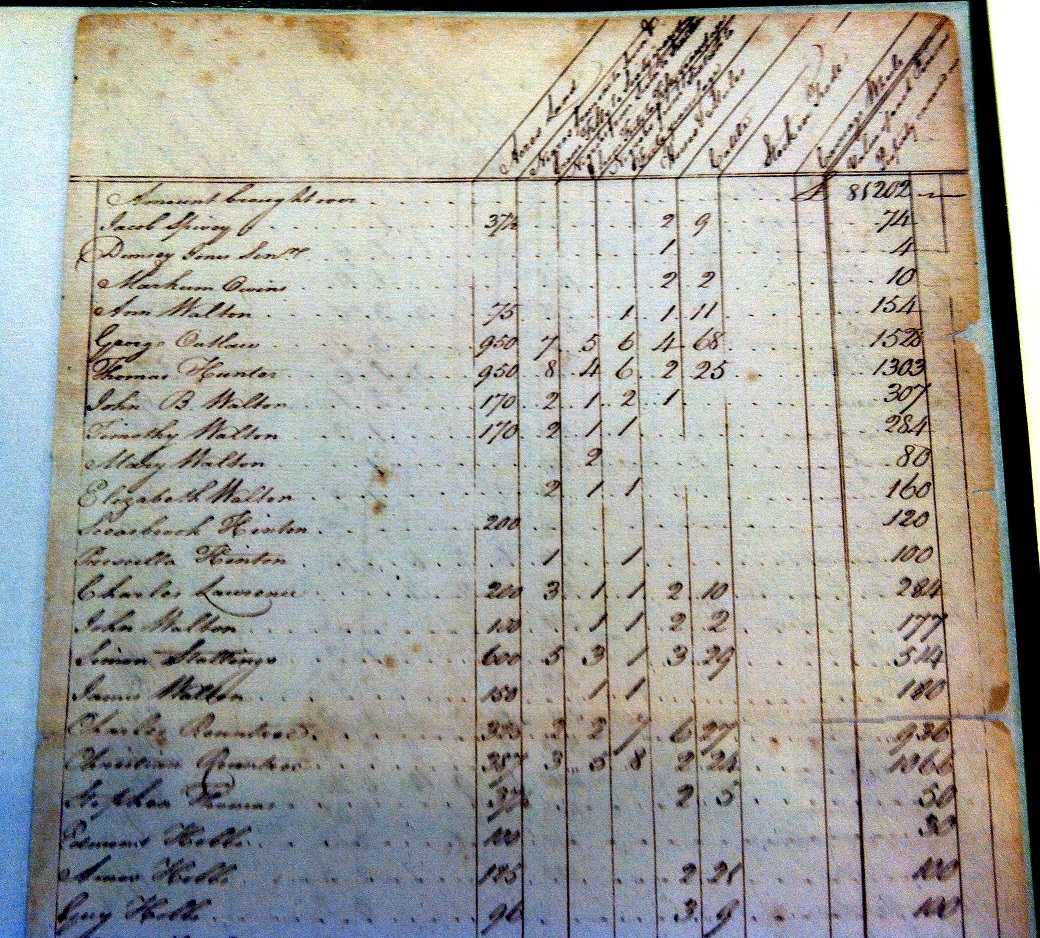 Acres Land
Cattle
Stock in Trade
Amount brought over £ 81202
Jacob Spivey 37½ 2 9 74
Demsey Jones Senr 1 4
Markum Owins 2 2 10
Ann Walton 75 1 1 11 154
George Outlaw 950 7 5 6 4 68 1528
Thomas Hunter 950 8 4 6 2 25 1303
John B Walton 170 2 1 2 1 307
Timothy Walton 170 2 1 1 284
Mary Walton 2 80
Elizabeth Walton 2 1 1 160
Seasbrook Hinton 200 120
Prescilla Hinton 1 1 100
Charles Lawrence 200 3 1 1 2 10 284
John Walton 100 1 1 2 2 177
Simon Stallings 600 5 3 1 3 29 544
James Walton 150 1 1 180
Charles Rountree 2 7 6 27 936
Christian Rountree 387 3 5 8 2 24 1066
Stephen Thomas 37½ 2 5 50
Hobbs 100 30
Amos Hobbs 125 2 21 100
Guy Hobbs 96 3 9 100